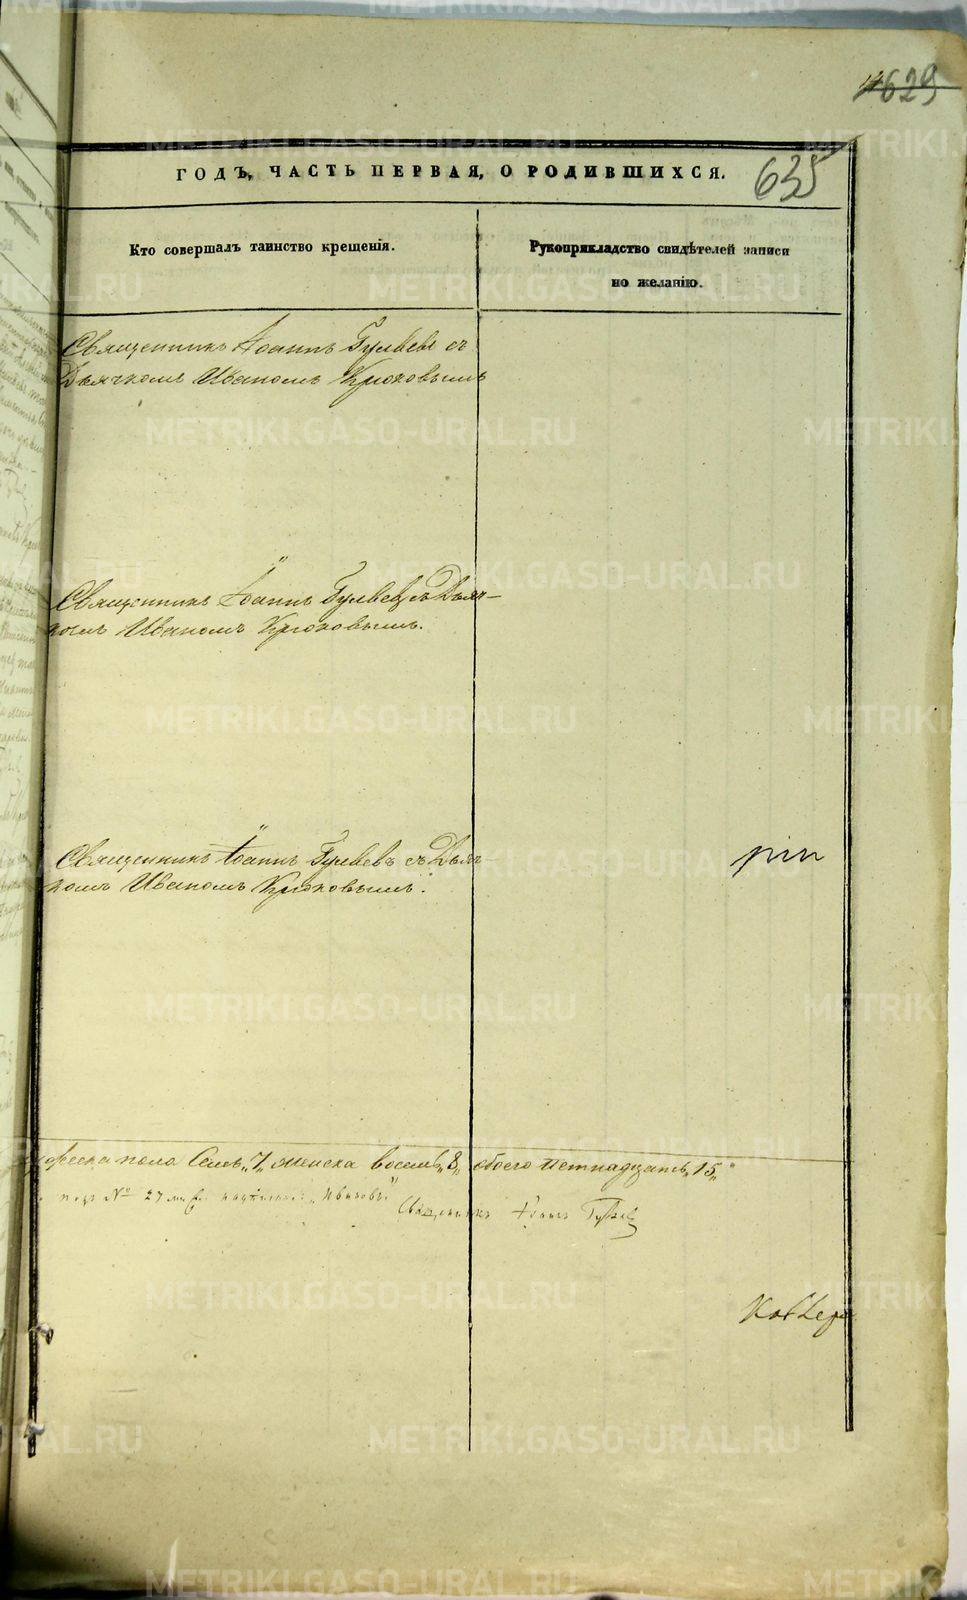 629
635
ГОДЪ, ЧАСТЬ ПЕРВАЯ, О РОДИВШИХСЯ.
Кто совершалъ таинство крещенія.
Рукоприкладство свидѣтелей записи
по желанію.
Священникъ Іоаннъ Гуляевъ съ
Дьячкомъ Иваномъ Крюковымъ
Священникъ Іоаннъ Гуляевъ съ Дьяч-
комъ Иваномъ Крюковымъ.
Священникъ Іоаннъ Гуляевъ съ Дьяч-
комъ Иваномъ Крюковымъ.
мужеска пола Семь „7„ женска восемь „8„ обоего пятнадцать „15„
подъ № 27 „Ивановъ“
Священникъ Іоаннъ
METRIKI.GASO-URAL.RU